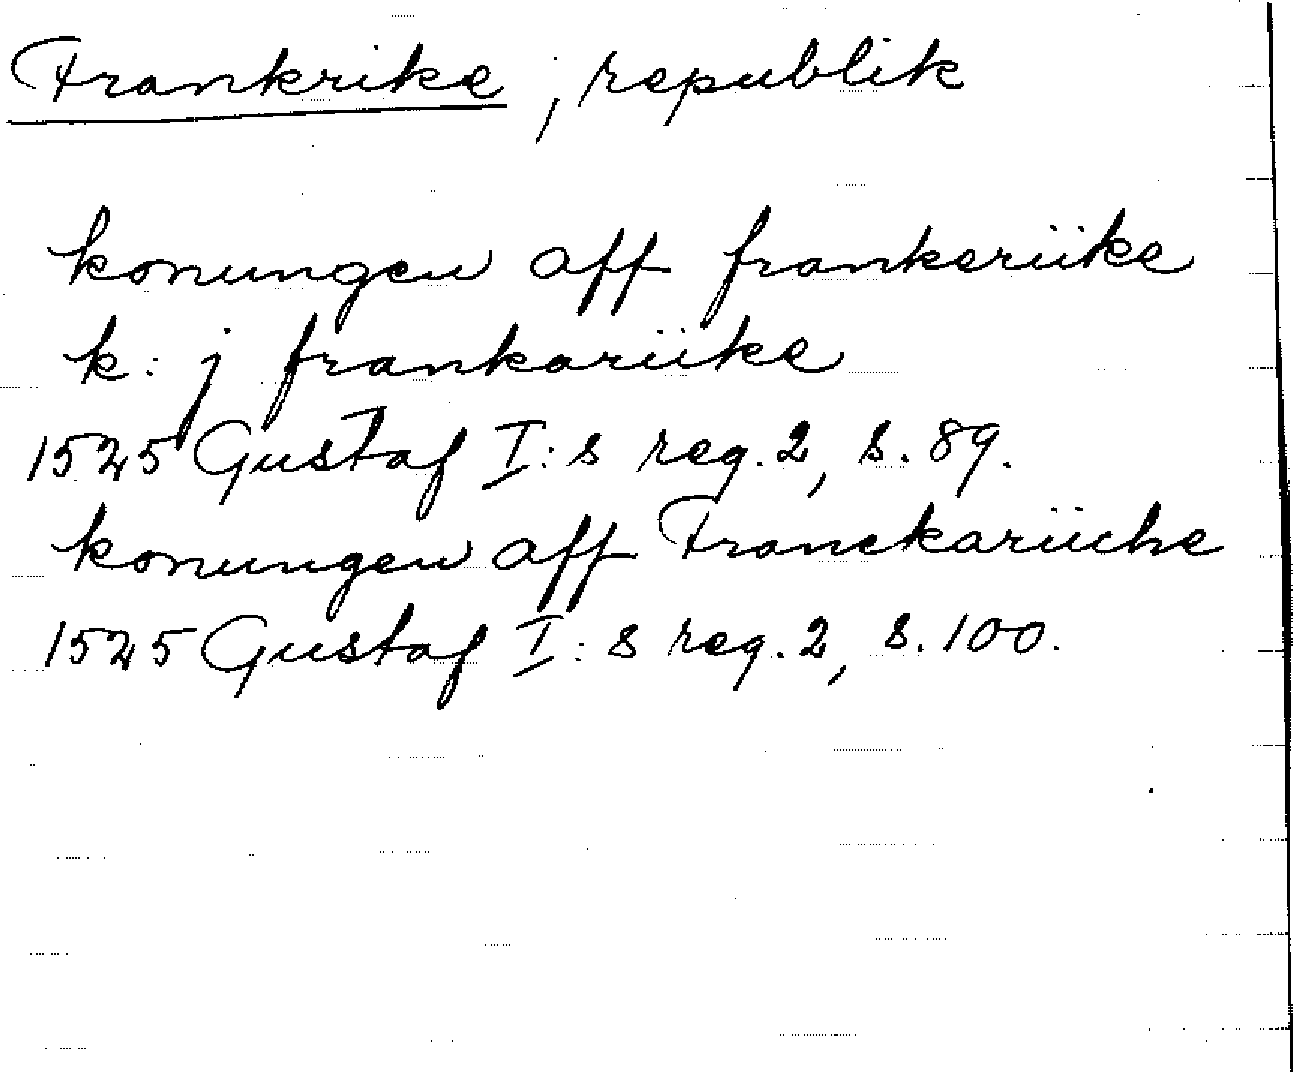 Frankrike, republik
konungen aff frankeriike
k: j frankariike
1525 Gustaf I:s reg. 2, s. 89.
konungen aff Franckariiche
1525 Gustaf I:s reg. 2, s. 100.